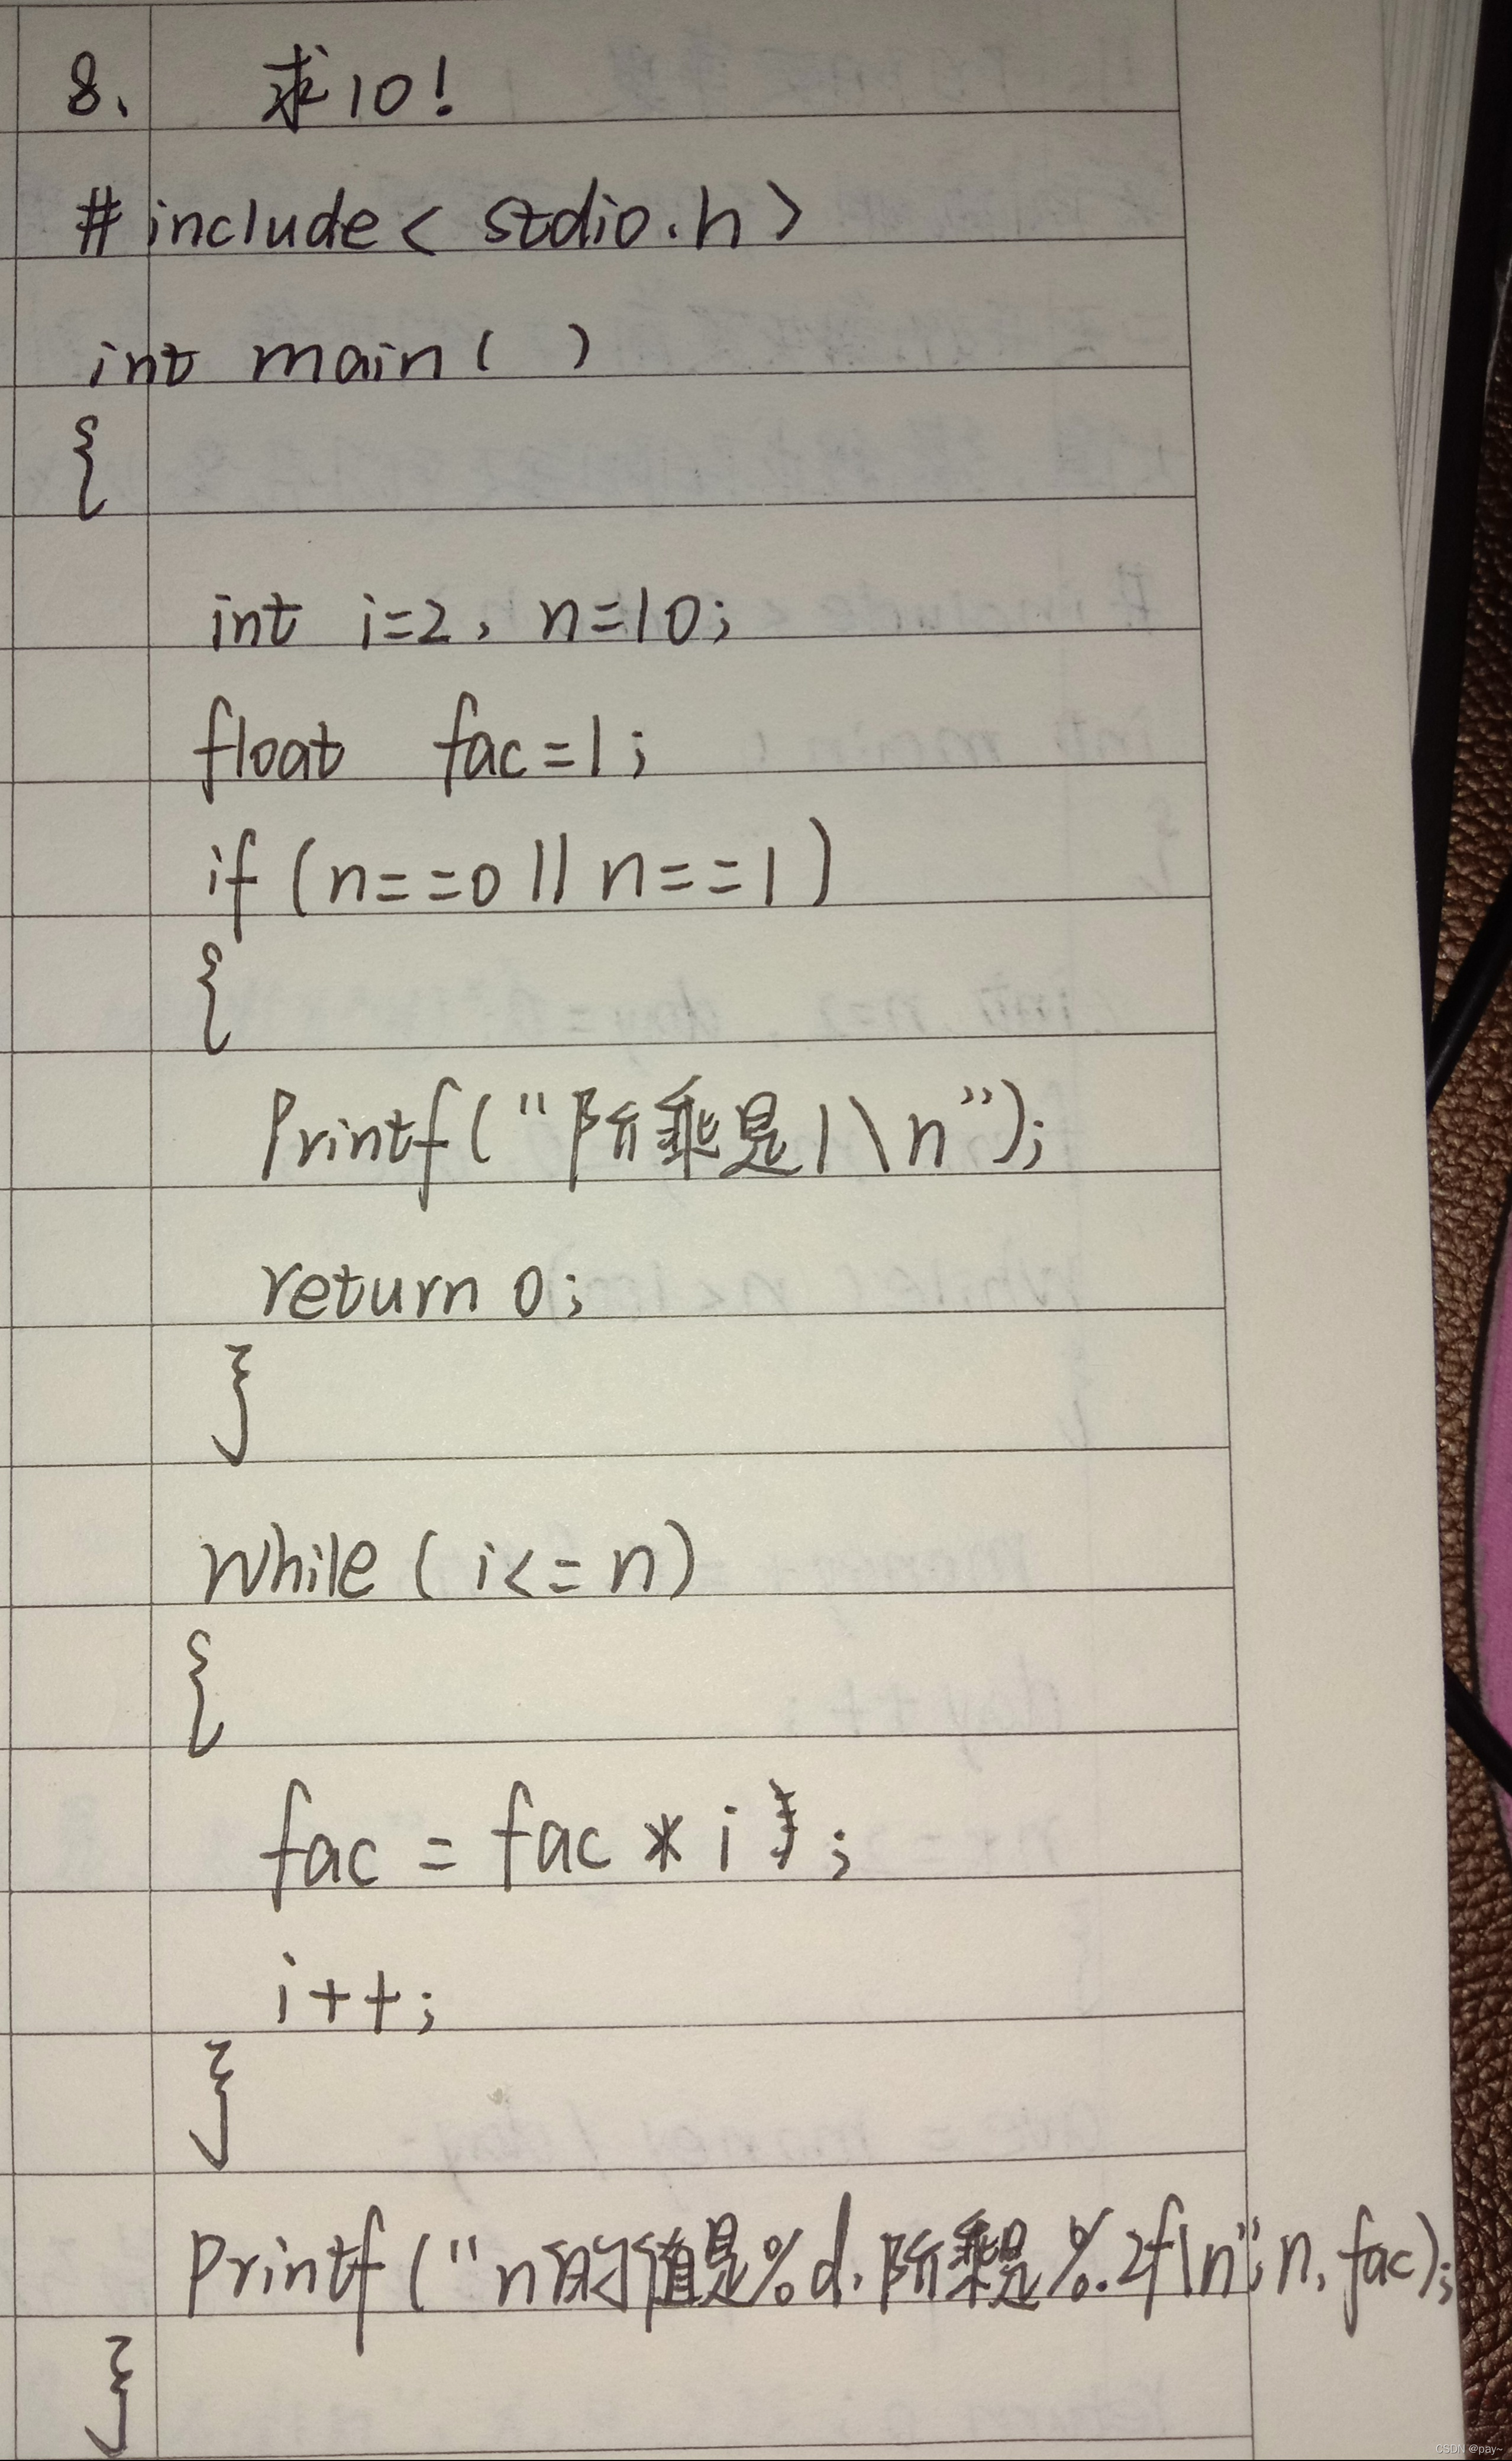 8、 求10!
#include< stdio.h>
int main( )
{
int i=2, n=10;
float fac=1;
if (n==0 || n==1)
{
Printf("阶乘是1\n");
return 0;
}
while ( i<=n)
{
fac = fac * i ;
i++;
}
Printf ("n的值是%d,阶乘是%.2f\n",n, fac);
}
CSDN @pay~